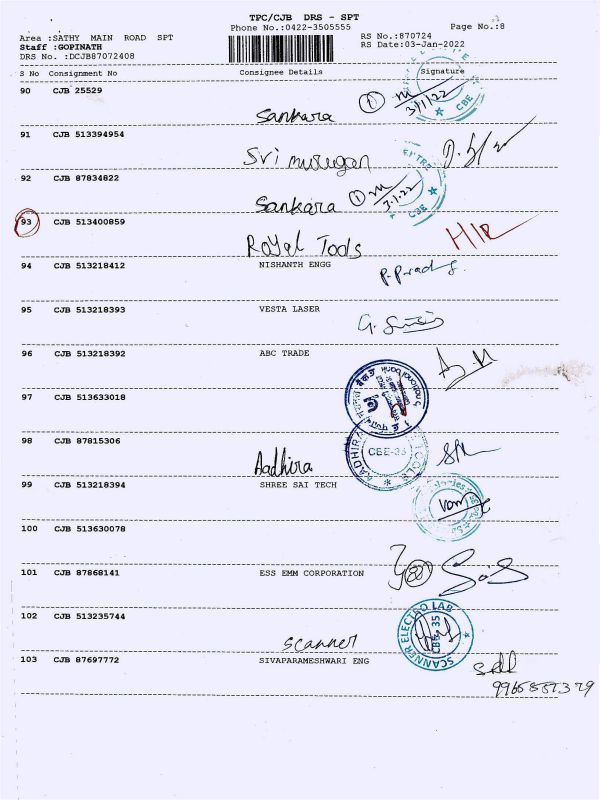 TPC/CJB DRS - SPT
Phone No.:0422-3505555 Page No.:8
Area :SATHY MAIN ROAD SPT RS No.:870724
Staff :GOPINATH RS Date:03-Jan-2022
DRS No. :DCJB87072408
S No Consignment No Consignee Details Signature
90 CJB 25529
Sankara 1 3/1/22 CBE
91 CJB 513394954
Sri murugan
92 CJB 87834822
Sankara 1 3.1.22 CBE
93 CJB 513400859
Royal Tools
94 CJB 513218412 NISHANTH ENGG
95 CJB 513218393 VESTA LASER
96 CJB 513218392 ABC TRADE
97 CJB 513633018
98 CJB 87815306 CBE-35
Aadhira
99 CJB 513218394 SHREE SAI TECH
100 CJB 513630078
101 CJB 87868141 ESS EMM CORPORATION
102 CJB 513235744
scanner SCANNER ELECTRO LAB CBE-35
103 CJB 87697772 SIVAPARAMESHWARI ENG